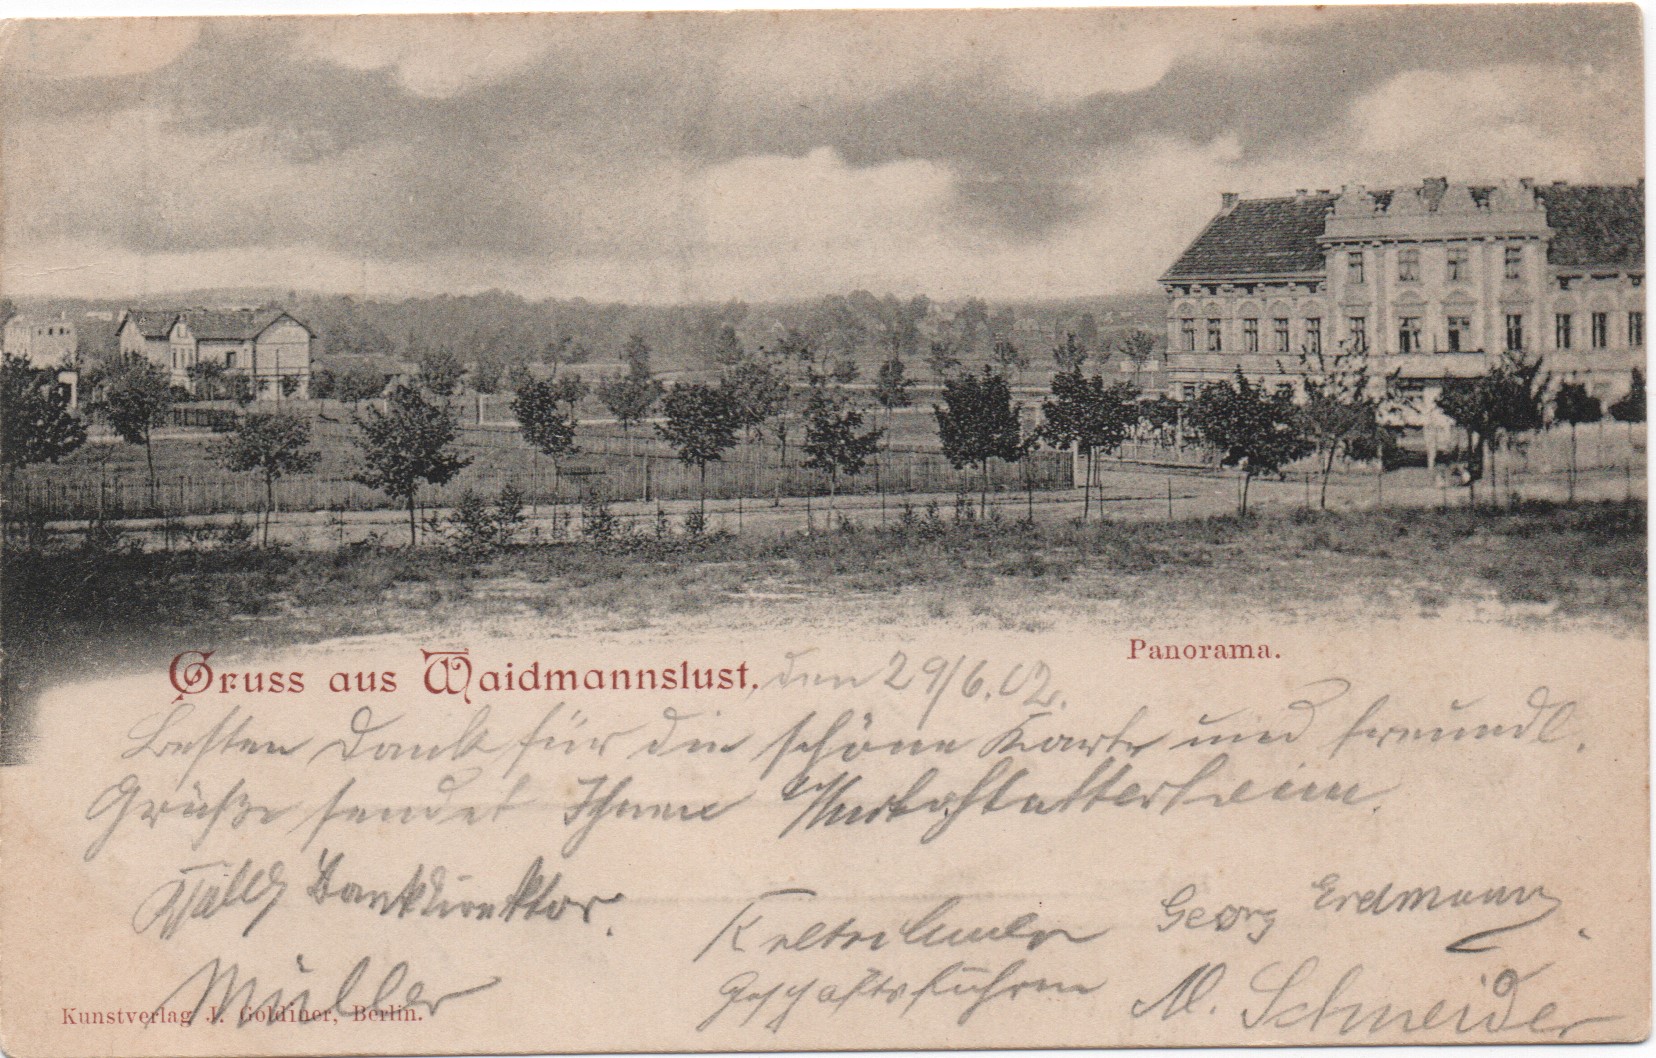 Panorama.
Gruss aus Waidmannslust, den 29/6.02.
Besten Dank für die schöne Karte und freundl.
Grüße sendet Ihnen
Bankdirektor.
Georg Erdmann
Müller
Geschäftsführer
M. Schneider
Kunstverlag J. Goldiner, Berlin.